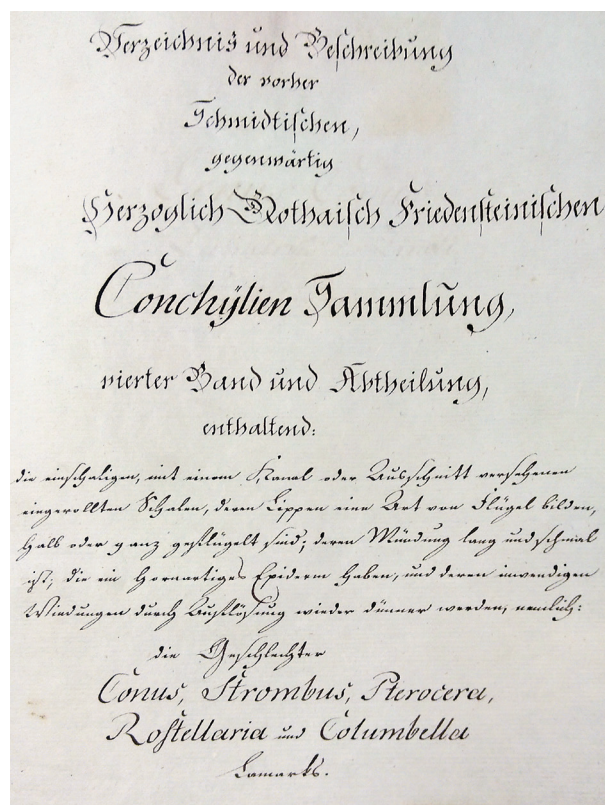 Verzeichnis und Beschreibung
der vorher
Schmidtischen,
gegenwärtig
Herzoglich Gothaisch Friedensteinischen
Conchÿlien Sammlung,
vierter Band und Abtheilung,
enthaltend:
die einschaligen, mit einem Kanal oder Ausschnitt versehenen
eingerollten Schalen, deren Lippen eine Art von Flügel bilden,
halb oder ganz geflügelt sind; deren Mündung lang und schmal
ist; die ein hornartiges Epiderm haben, und deren inwendigen
Windungen durch Auflösung wieder dünner werden, nemlich:
die Geschlechter
Conus, Strombus, Pterocera,
Rostellaria und Columbella
Lamarks.